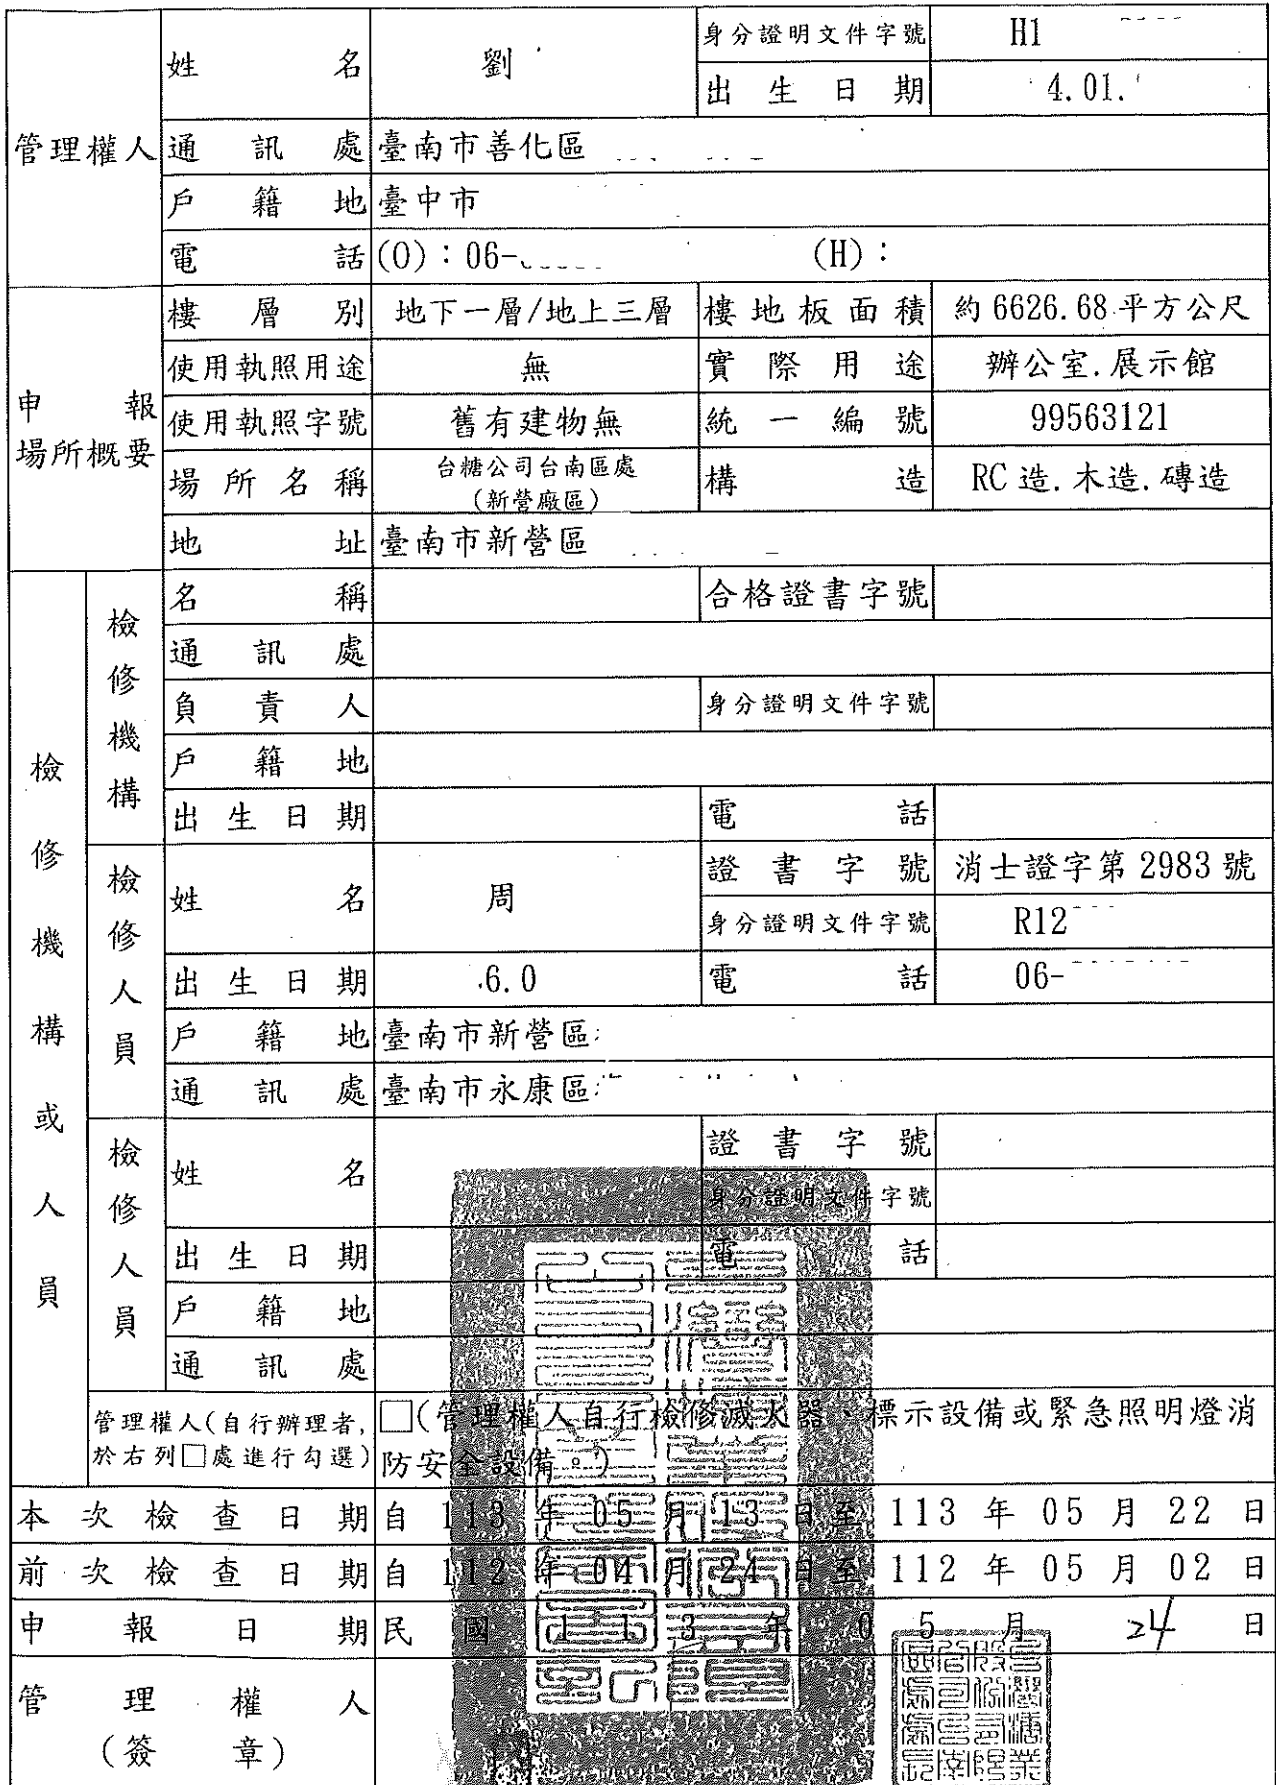 管理權人 姓名 劉 身分證明文件字號 H1
出生日期 4.01.
通訊處 臺南市善化區
戶籍地 臺中市
電話 (O):06- (H):
申報場所概要 樓層別 地下一層/地上三層 樓地板面積 約6626.68平方公尺
使用執照用途 無 實際用途 辦公室.展示館
使用執照字號 舊有建物無 統一編號 99563121
場所名稱 台糖公司台南區處(新營廠區) 構造 RC造.木造.磚造
地址 臺南市新營區
檢修機構或人員
檢修機構 名稱 合格證書字號
通訊處
負責人 身分證明文件字號
戶籍地
出生日期 電話
檢修人員 姓名 周 證書字號 消士證字第2983號
身分證明文件字號 R12
出生日期 .6.0 電話 06-
戶籍地 臺南市新營區
通訊處 臺南市永康區
檢修人員 姓名 證書字號
身分證明文件字號
出生日期 電話
戶籍地
通訊處
管理權人(自行辦理者,於右列□處進行勾選) □(管理權人自行檢修滅火器、標示設備或緊急照明燈消防安全設備。)
本次檢查日期 自 113 年 05 月 13 日至 113 年 05 月 22 日
前次檢查日期 自 112 年 04 月 24 日至 112 年 05 月 02 日
申報日期 民國 113 年 05 月 24 日
管理權人
(簽章)